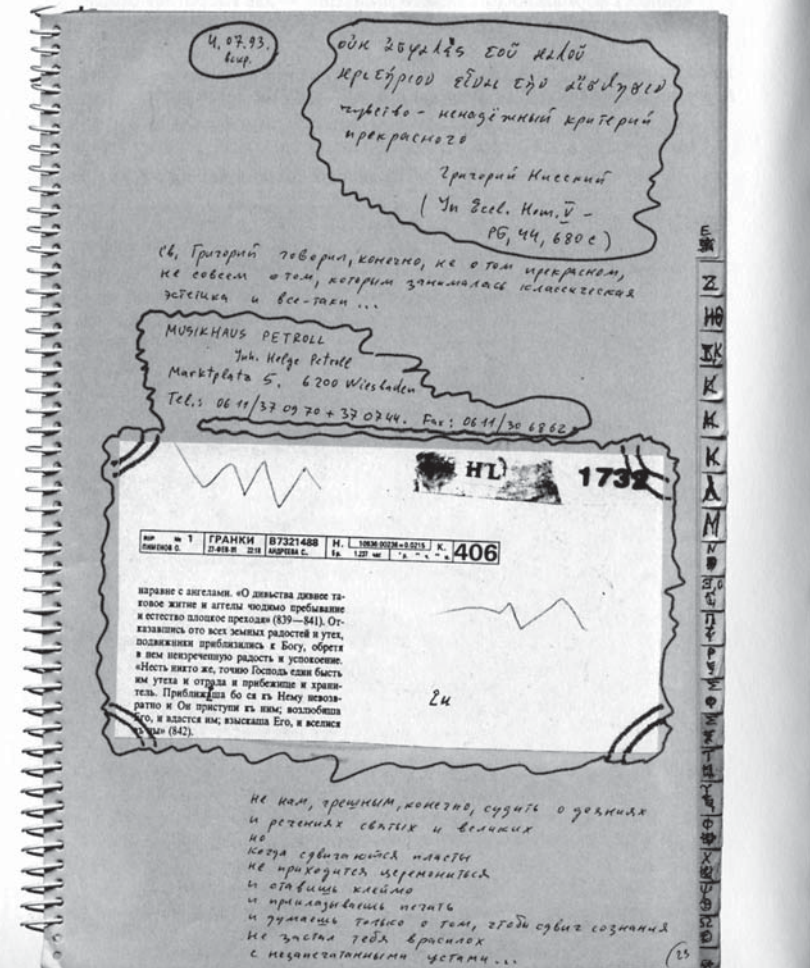 4.07.93.
воскр.
οὐκ ἀσφαλὲς τοῦ καλοῦ
κριτήριον εἶναι τὴν αἴσθησιν
чувство – ненадёжный критерий
прекрасного
Григорий Нисский
(In Eccl. Hom. V –
PG, 44, 680 c)
Св. Григорий говорил, конечно, не о том прекрасном,
не совсем о том, которым занималась классическая
эстетика и все-таки ...
MUSIKHAUS PETROLL
Inh. Helge Petroll
Marktplatz 5. 6200 Wiesbaden
Tel.: 0611/37 09 70 + 37 07 44. Fax: 0611/30 68 62
HL
1732
№ 1 ГРАНКИ В7321488 Н. К. 406
ПИМЕНОВ О. 22:18 АНДРЕЕВА С.
наравне с ангелами. «О дивьства дивнее та-
ковое житие и аггелы чюдимо пребывание
и естество плоцкое преходя» (839—841). От-
казавшись ото всех земных радостей и утех,
подвижники приблизились к Богу, обретя
в нем неизреченную радость и успокоение.
«Несть никто же, точию Господь един бысть
им утеха и отрада и прибежище и храни-
тель. Приближиша бо ся къ Нему невозв-
ратно и Он приступи къ ним; возлюбиша
Его, и вдастся им; взыскаша Его, и вселися
въ ны» (842).
2н
не нам, грешным, конечно, судить о деяниях
и речениях святых и великих
но
когда сдвигаются пласты
не приходится церемониться
и ставишь клеймо
и прикладываешь печать
и думаешь только о том, чтобы сдвиг сознания
не застал тебя врасплох
с незапечатанными устами ...
23
E
Z
ΗΘ
K
Λ
M
N